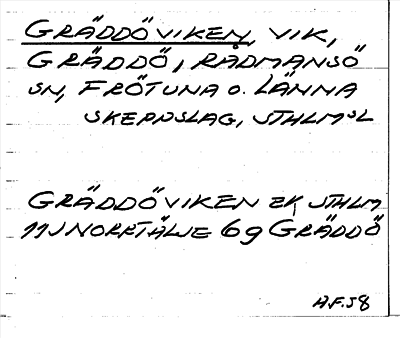 GRÄDDÖVIKEN, VIK,
GRÄDDÖ, RÅDMANSÖ
SN, FRÖTUNA O. LÄNNA
SKEPPSLAG, STHLMSL
GRÄDDÖVIKEN EK STHLM
11J NORRTÄLJE 6g GRÄDDÖ
A.F. 58